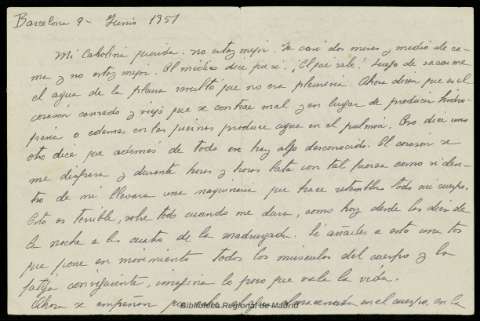 Barcelona 9- Junio 1951
Mi Carolina querida: no estoy mejor. Ya casi dos meses y medio de ca-
ma y no estoy mejor. El médico dice que sí. ¡El que sabe! Luego de sacarme
el agua de la pleura resultó que no era pleuresía. Ahora dicen que es el
corazón cansado y viejo que se contrae mal y en lugar de producir hidro-
pesía o edema en las piernas produce agua en el pulmón. Eso dice uno
otro dice que además de todo eso hay algo desconocido. El corazón se
me dispara y durante horas y horas bata con tal fuerza como si den-
tro de mi llevara una maquinaria que hace retemblar todo mi cuerpo.
Esto es terrible, sobre todo cuando me dura, como hoy desde las diez de
la noche a las cuatro de la madrugada. Le añades a esto una tos
que pone en movimiento todos los músculos del cuerpo y la
fatiga consiguiente, imagina lo poco que vale la vida.
Ahora se empeñan en el cuerpo, en la
Biblioteca Regional de Madrid